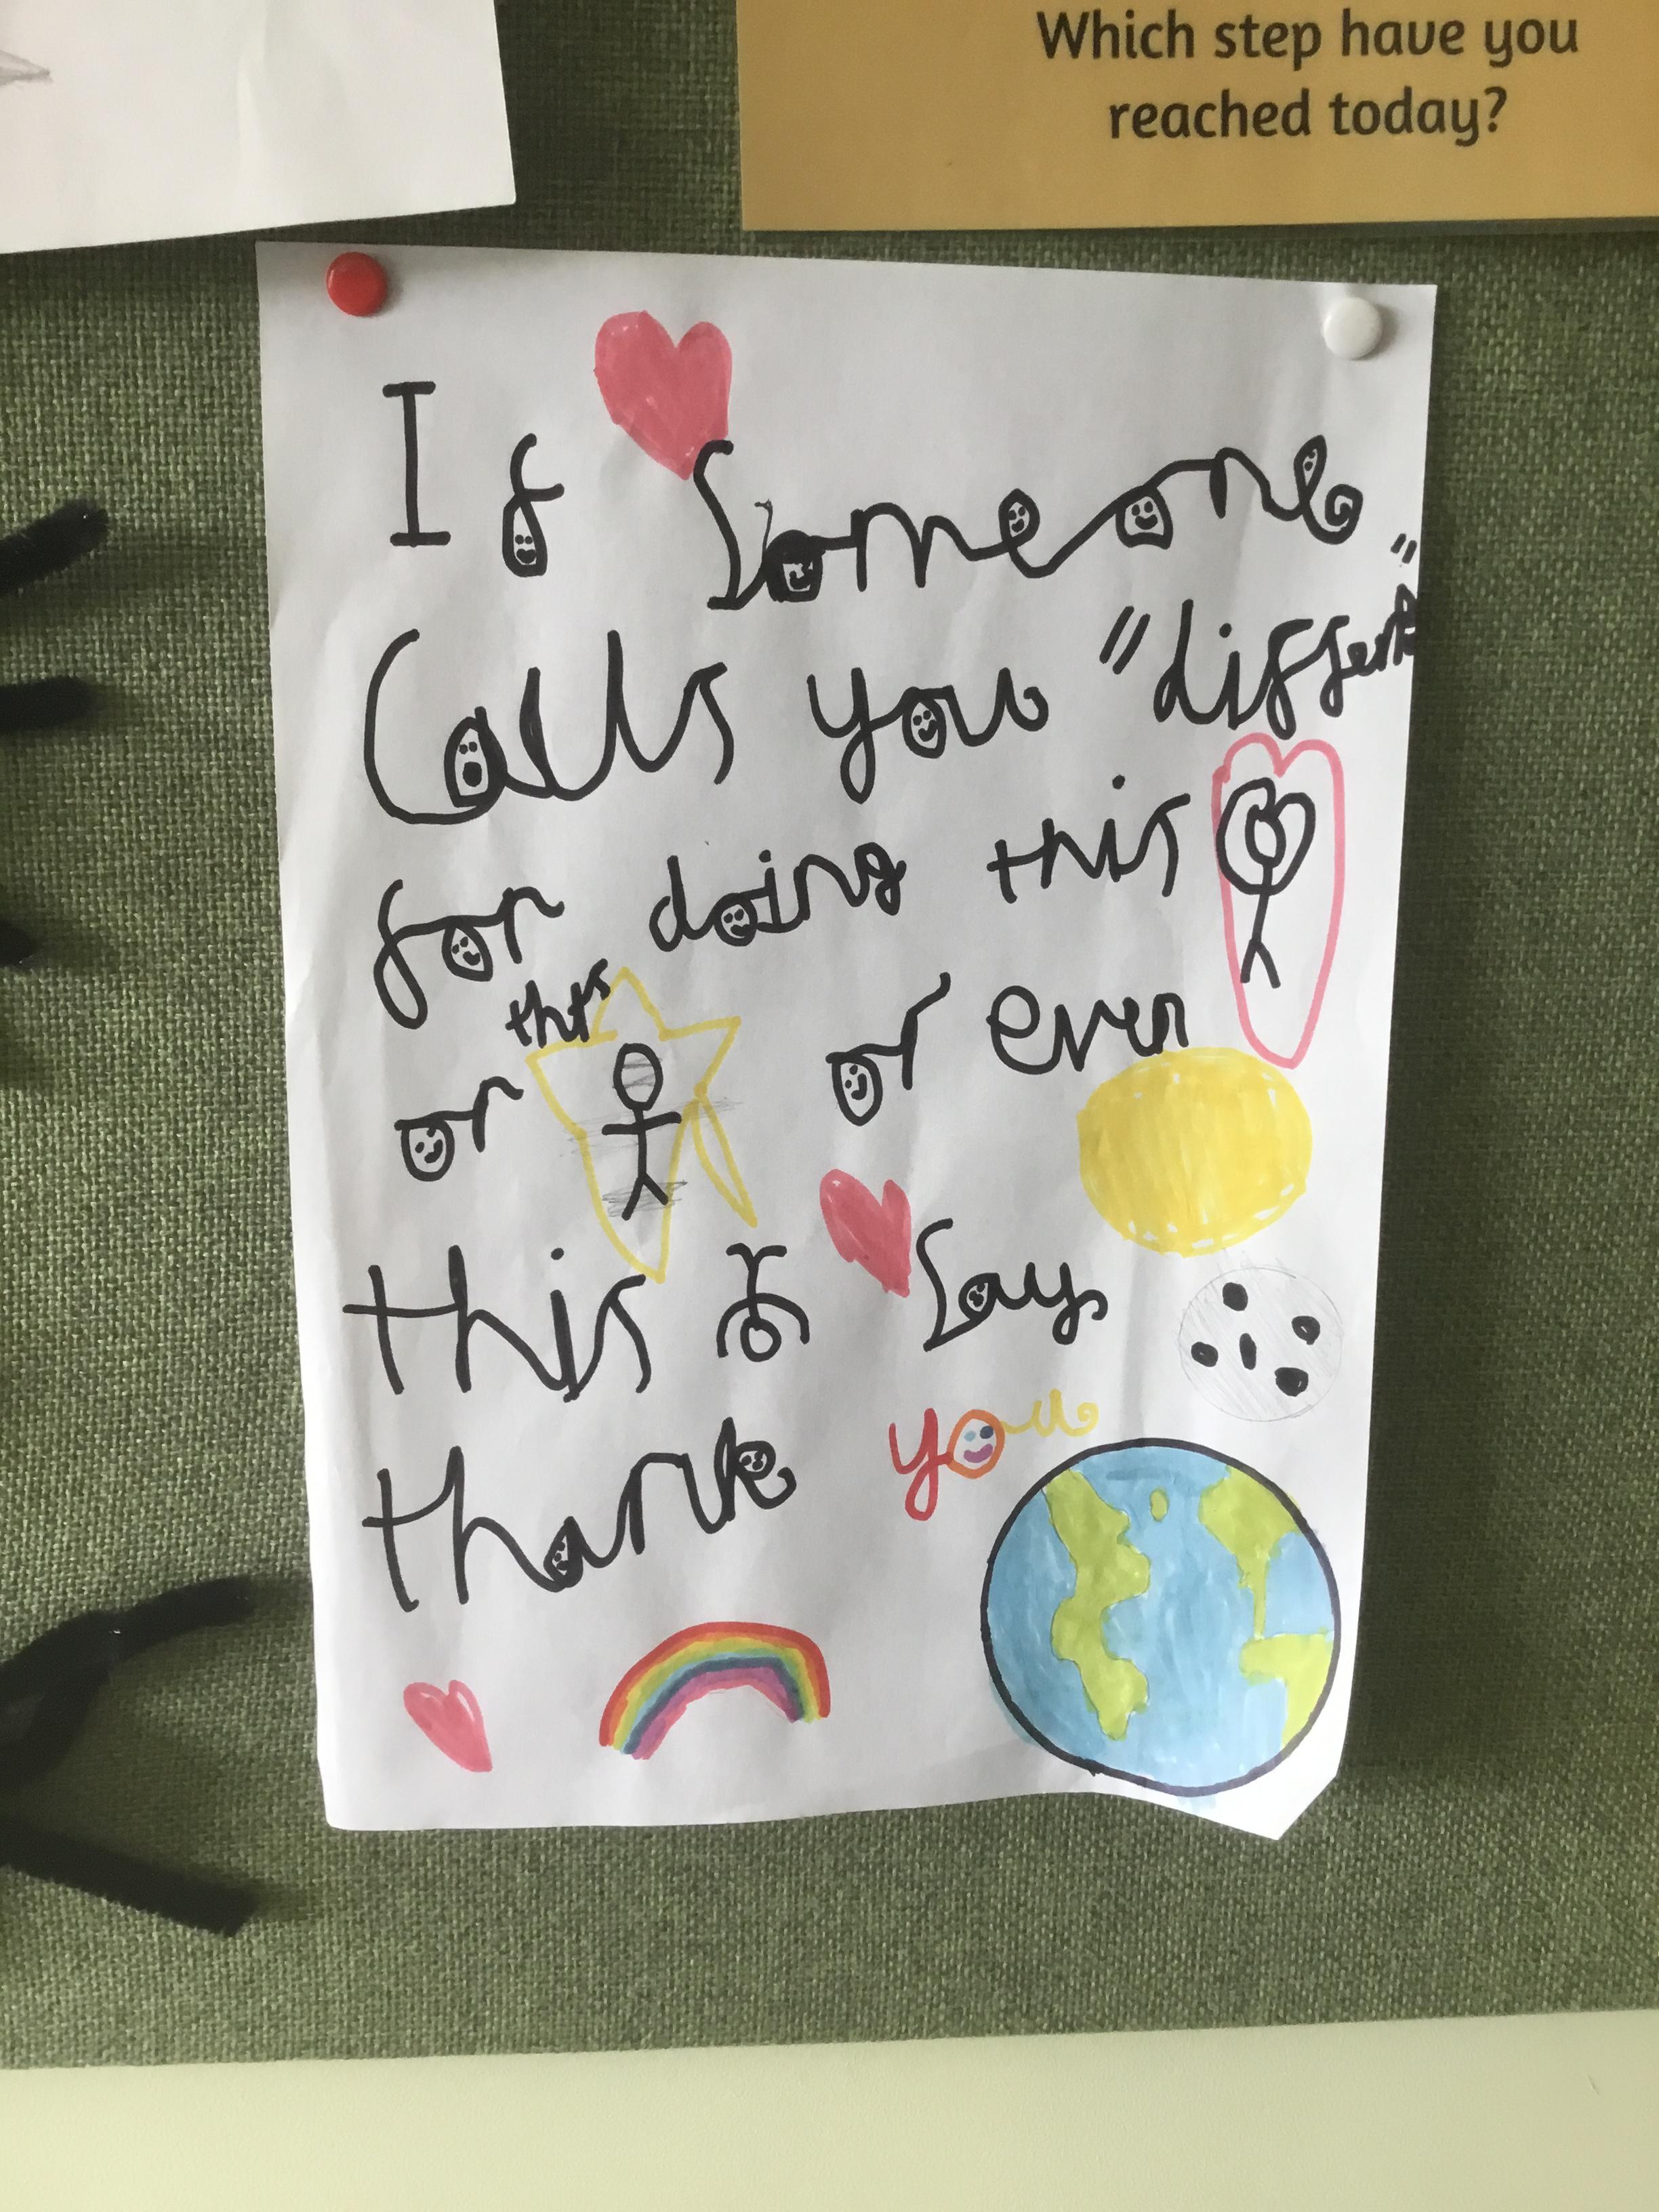 Which step have you
reached today?
If Someone
Calls you "different"
for doing this
or this or even
this Say
thank you